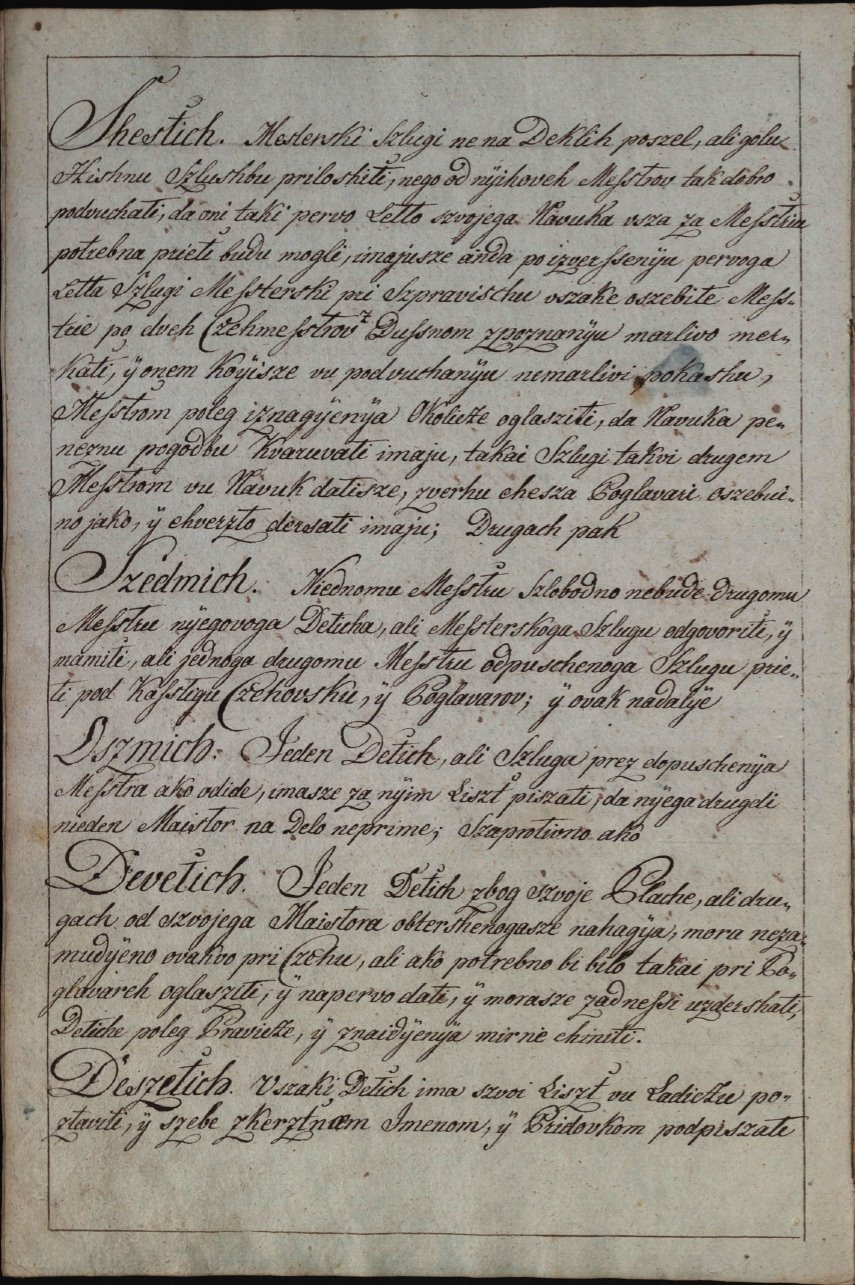 Shestich. Mesterski Szlugi ne na Deklih poszel, ali golu
Hishnu Szlushbu priloshiti, nego od nyihoveh Messtrov tak dobro
podvuchati, da oni taki pervo Letto szvojega Navuka vsza za Messtriu
potrebna prieti budu mogli, imajusze anda po izverssenyu pervoga
Letta Szlugi Messterski pri Szpravischu vszake oszebite Mess-
trie po dveh Czehmesstrov z Dussnom zpoznanyu marlivo mer-
kati, ÿ onem koyisze vu podvuchanyu nemarlivi pokashu,
Messtrom poleg iznagyenya Okolicze oglasziti, da Navuka pe-
neznu pogodbu Kvaruvati imaju, takai Szlugi takvi drugem
Messtrom vu Navuk datisze, zverhu chesza Poglavari oszebui-
no jako, ÿ chverzto dersati imaju; Drugach pak
Szedmich. Niednomu Messtru Szlobodno nebude drugomu
Messtru nyegovoga Deticha, ali Messterskoga Szlugu odgovoriti, ÿ
mamiti, ali jednoga drugomu Messtru odpuschenoga Szlugu prie-
ti pod Kasstigu Czehovsku, ÿ Poglavarov; ÿ ovak nadalye
Oszmich. Jeden Detich, ali Szluga prez dopuschenya
Messtra ako odide, imasze za nyim Liszt piszati, da nyega drugdi
nieden Maistor na Delo neprime; Szaprotivno ako
Devetich. Jeden Detich zbog szvoje Plache, ali dru-
gach od szvojega Maistora obtershenogasze nahagya, mora neza-
mudyeno ovakvo pri Czehu, ali ako potrebno bi bilo takai pri Po-
glavareh oglasziti, ÿ napervo dati, ÿ morasze zadnessi uzdershati,
Detiche poleg Pravicze, ÿ znaidyenya mirne chiniti.
Deszetich. Vszaki Detich ima szvoi Liszt vu Ladiczu po-
ztaviti, ÿ szebe zkerztnem Imenom, ÿ Pridovkom podpiszati